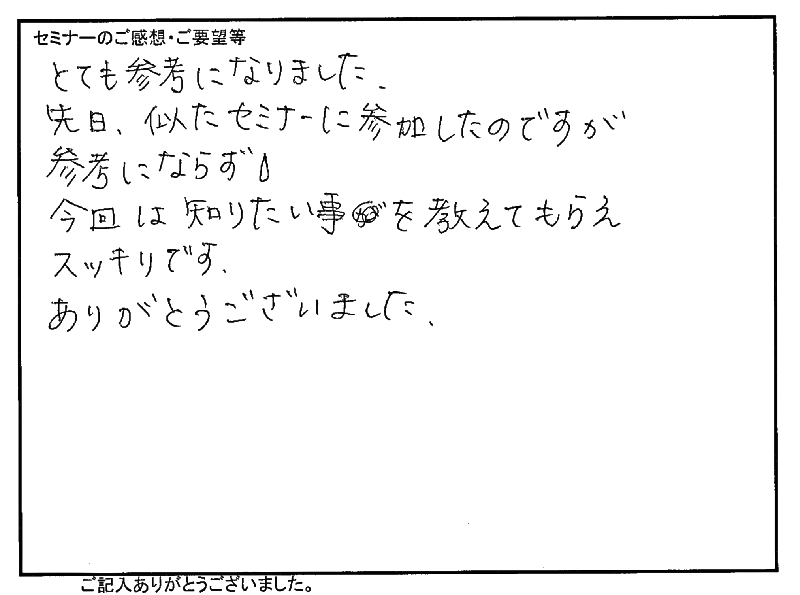 セミナーのご感想・ご要望等
とても参考になりました.
先日、似たセミナーに参加したのですが
参考にならず
今回は知りたい事を教えてもらえ
スッキリです.
ありがとうございました.
ご記入ありがとうございました。